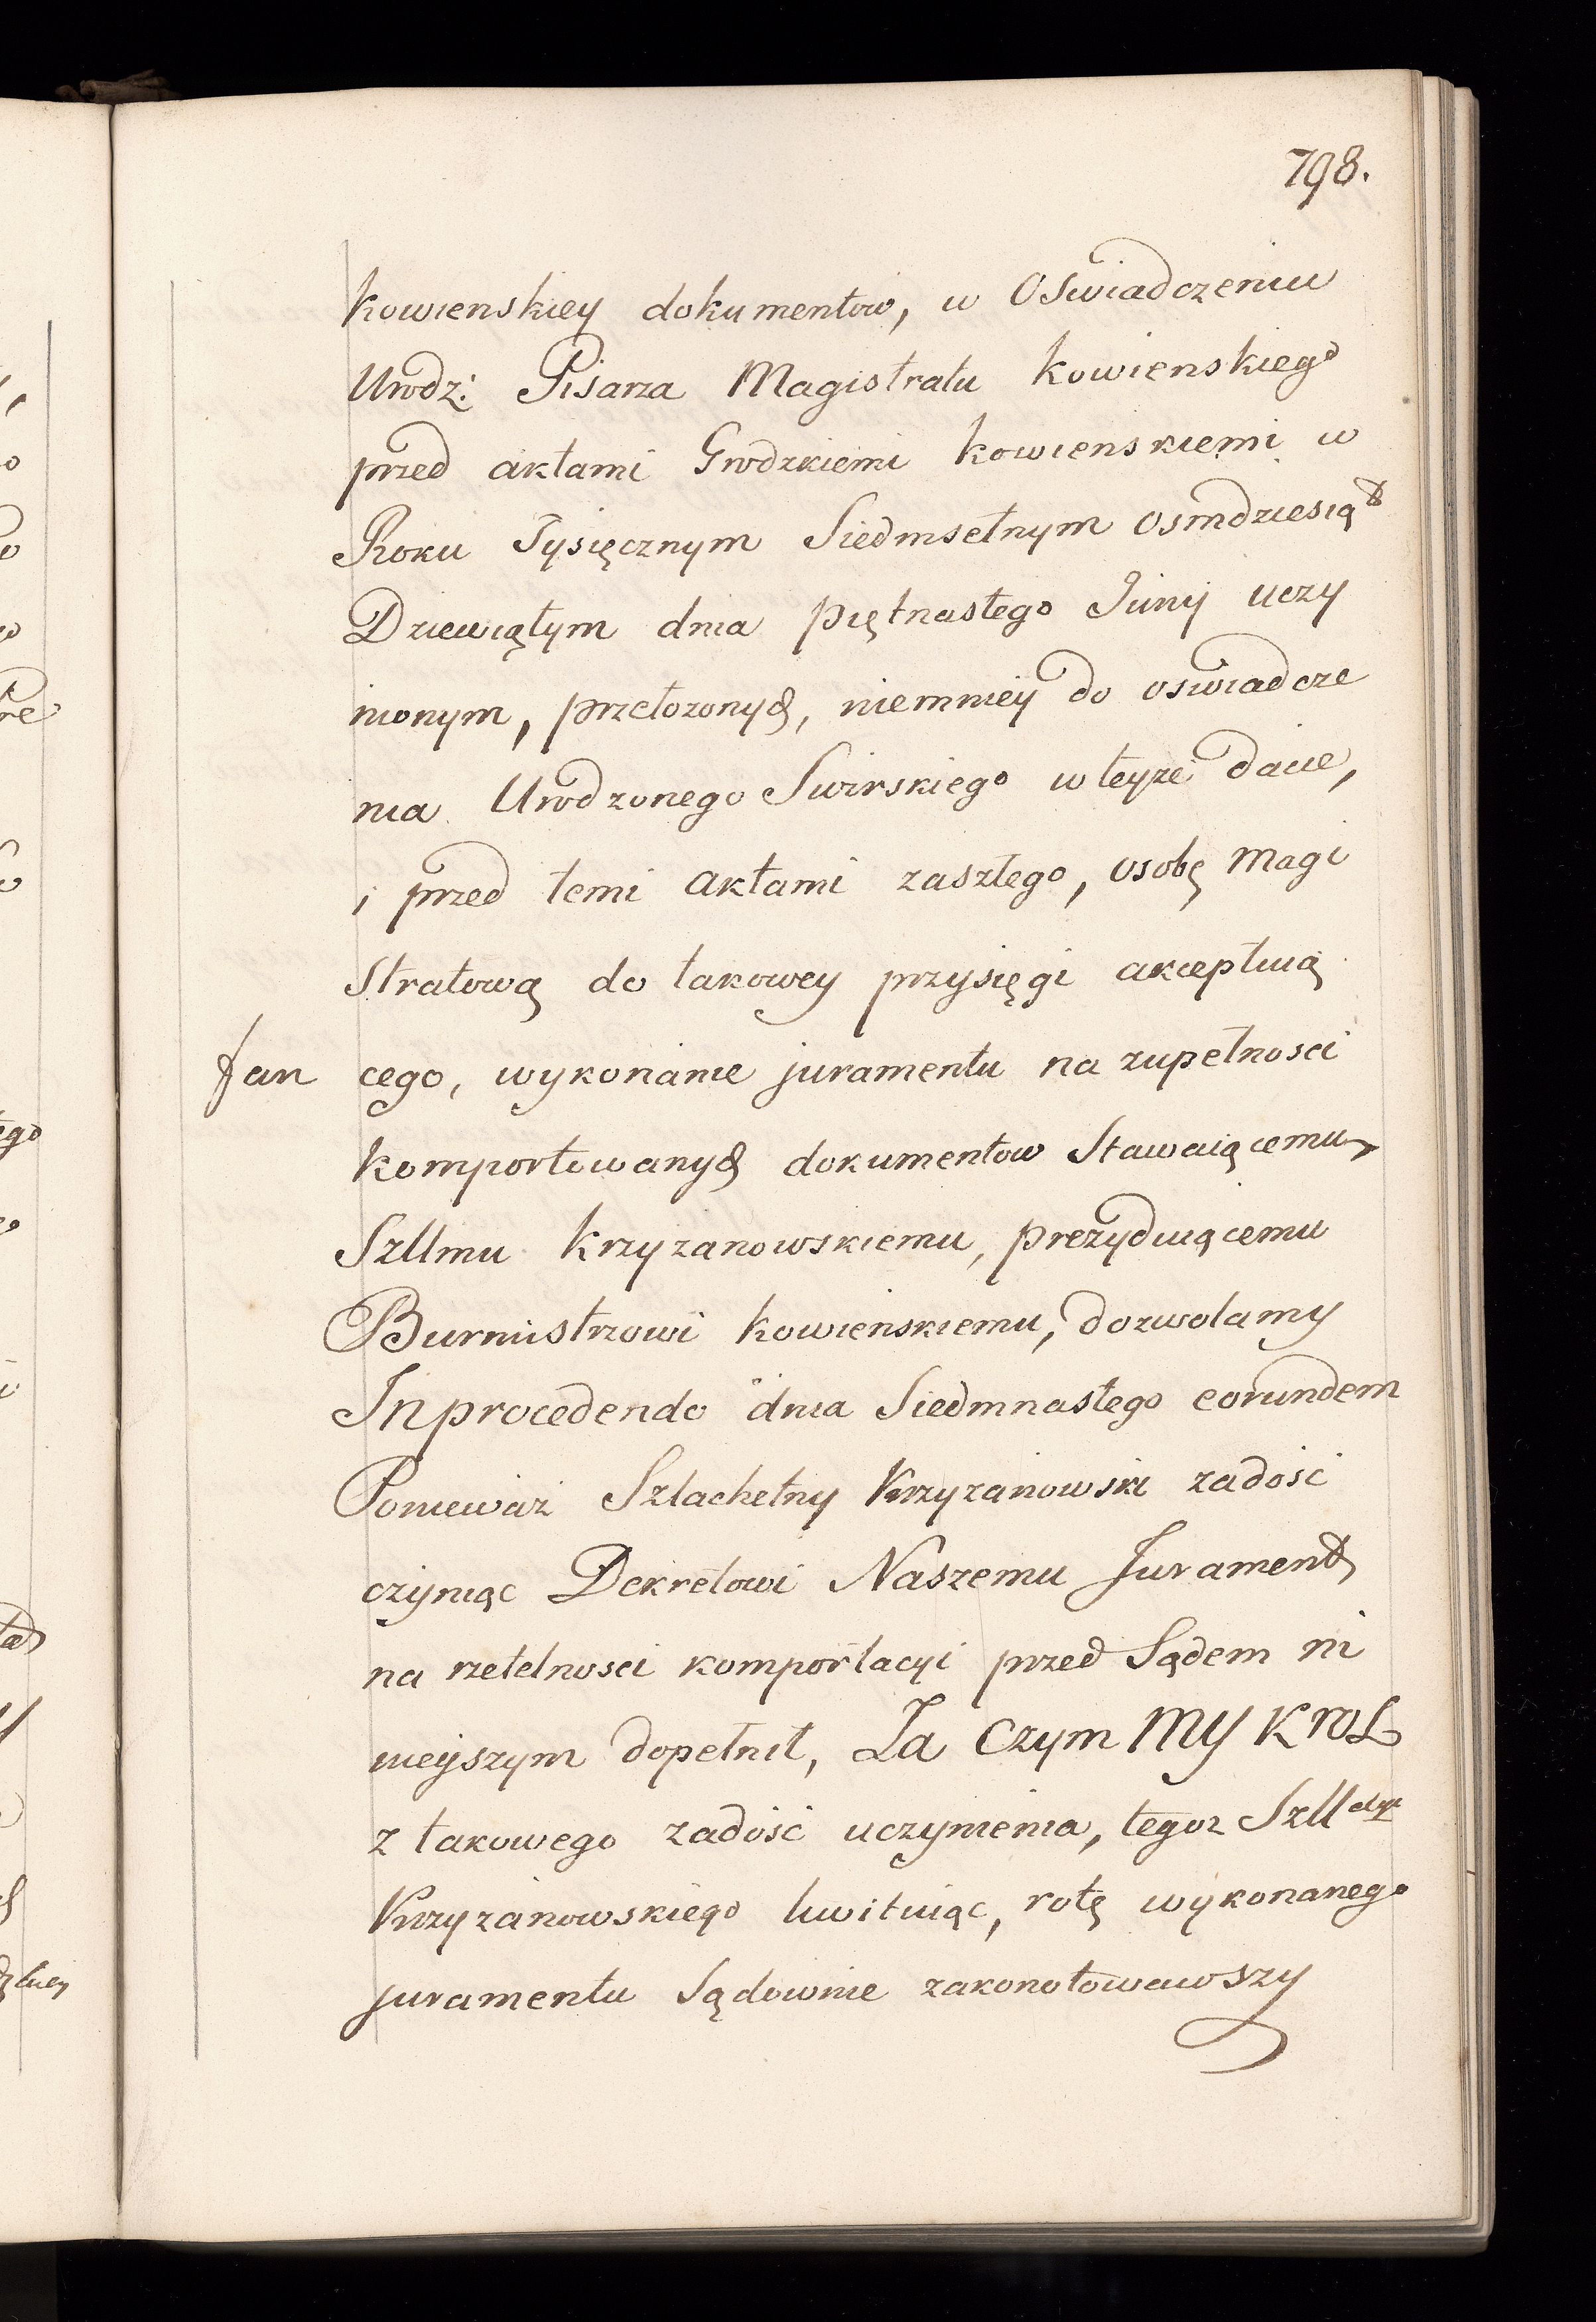 798.
kowienskiey dokumentow, w Oswiadczeniu
Urodz: Pisarza Magistratu kowienskiego
przed aktami Grodzkiemi kowienskiemi w
Roku Tysięcznym Siedmsetnym osmdziesiąt
Dziewiątym dnia piętnastego Juny uczy
nionym, przełozonych, niemniey do oswiadcze
nia Urodzonego Swirskiego w teyże dacie,
i przed temi aktami zaszłego, osobę Magi
stratową do takowey przysięgi akceptuią
Jan cego, wykonanie juramentu na zupełnosci
komportowanych dokumentow Stawaiącemu
Szllmu Krzyzanowskiemu, prezyduiącemu
Burmistrzowi kowienskiemu, dozwolamy
In procedendo dnia Siedmnastego eorundem
Poniewaz Szlachetny Krzyzanowski zadość
czyniąc Dekretowi Naszemu Jurament
na rzetelnosci komportacyi przed Sądem ni
nieyszym dopełnił, Za czym MY KROL
z takowego zadość uczynienia, tegoz
Krzyzanowskiego kwituiąc, rotę wykonanego
juramentu Sądownie zakonotowawszy